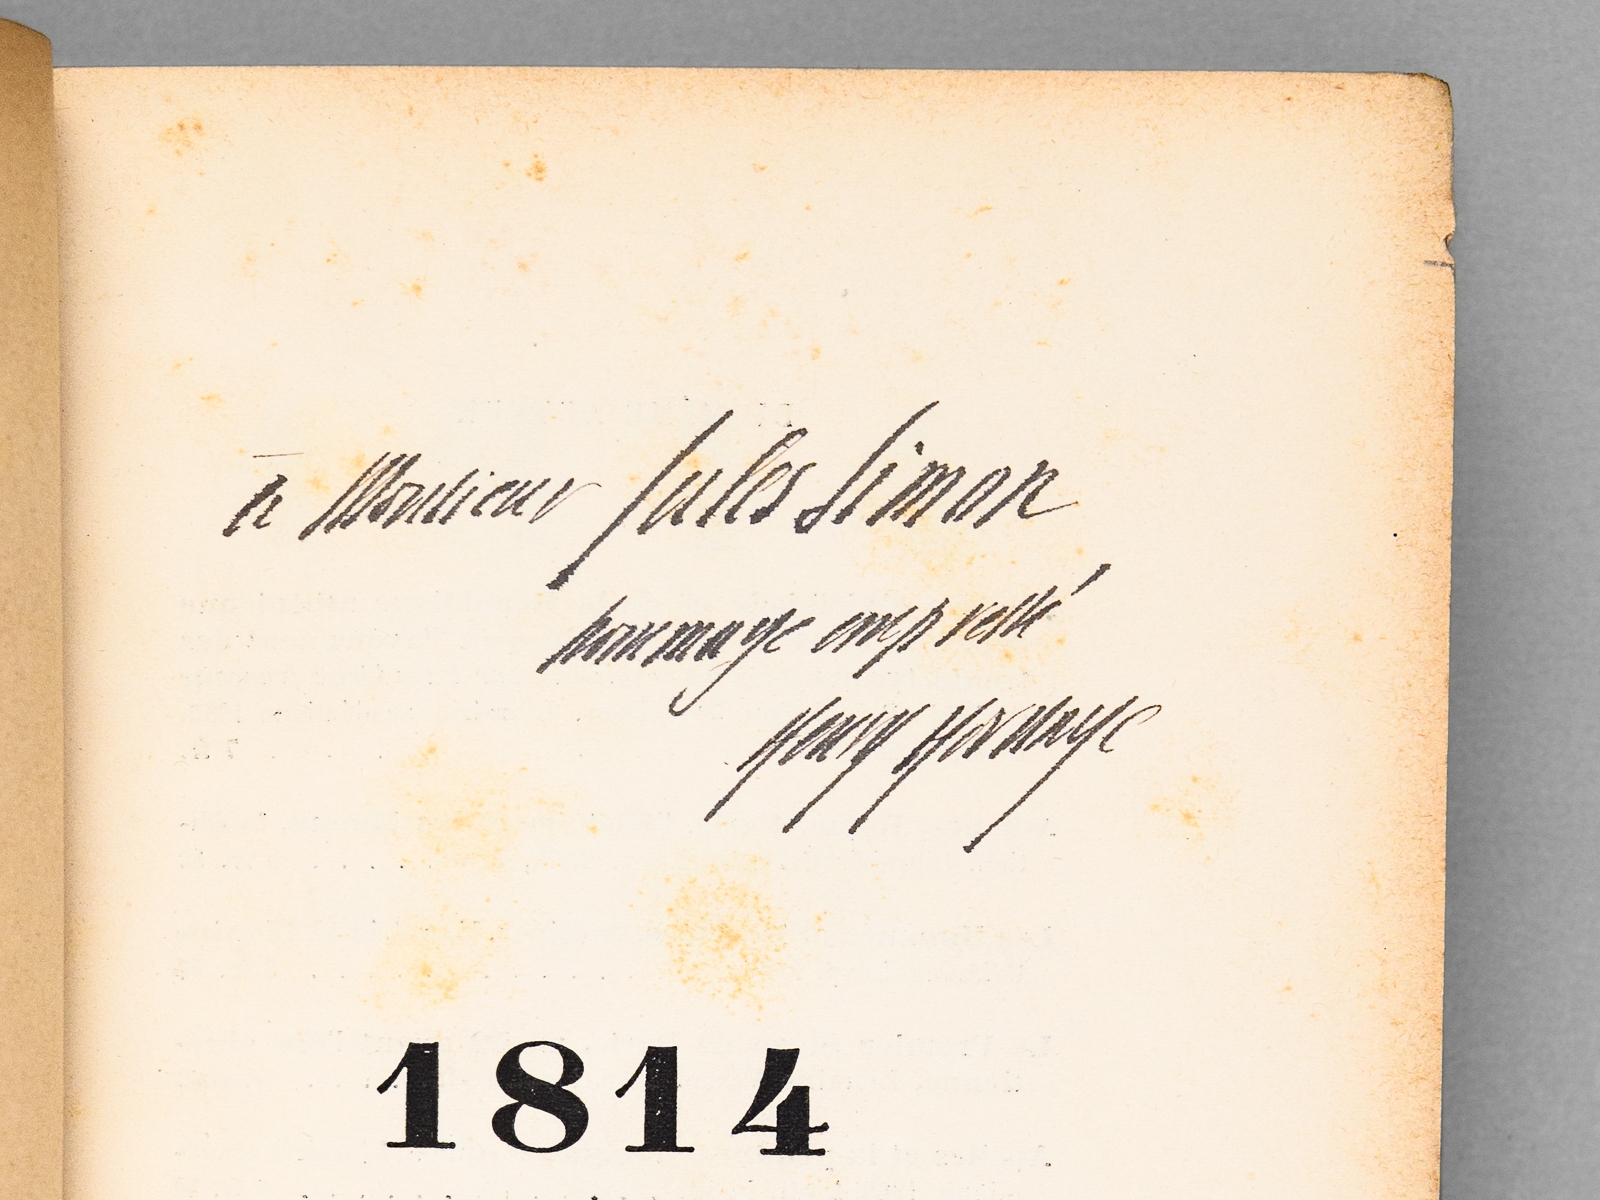 à Monsieur Jules Simon
hommage empressé
Henry Houssaye
1814